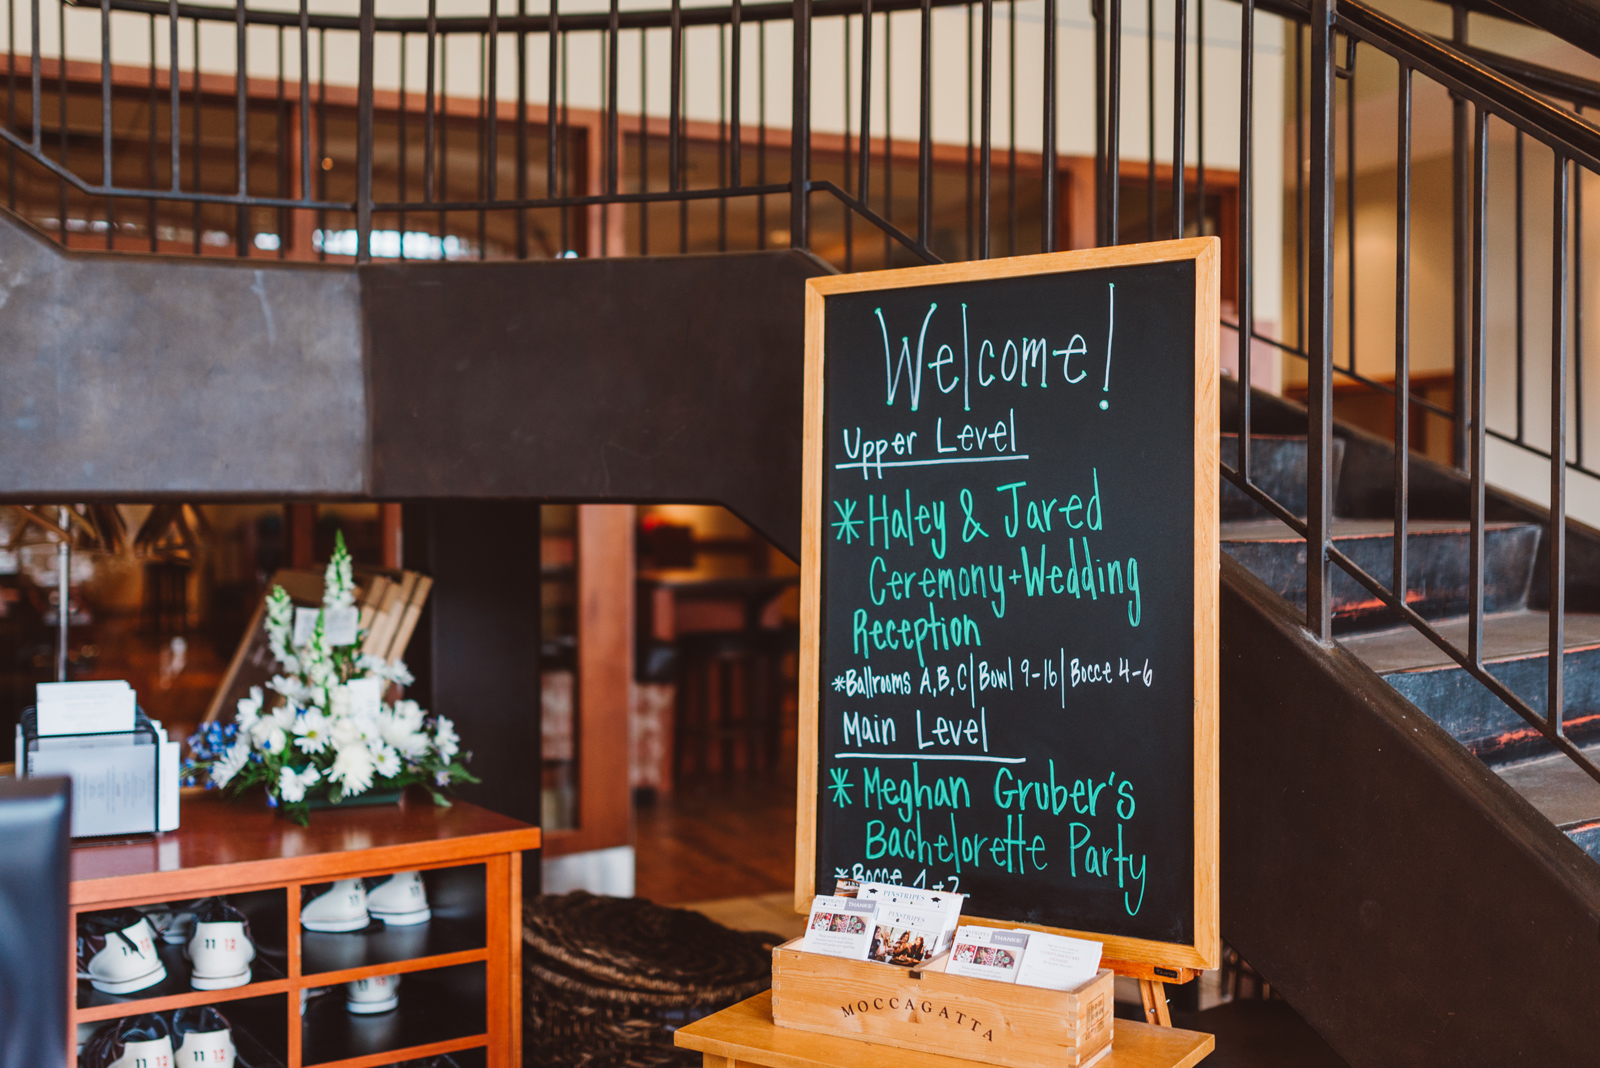 Welcome!
Upper Level
*Haley & Jared
Ceremony+Wedding
Reception
*Ballrooms A,B,C|Bowl 9-16|Bocce 4-6
Main Level
*Meghan Gruber's
Bachelorette Party
*Bocce 1+2
PINSTRIPES
THANKS!
PINSTRIPES
THANKS!
MOCCAGATTA
11 12
11 12
11 12
11 12